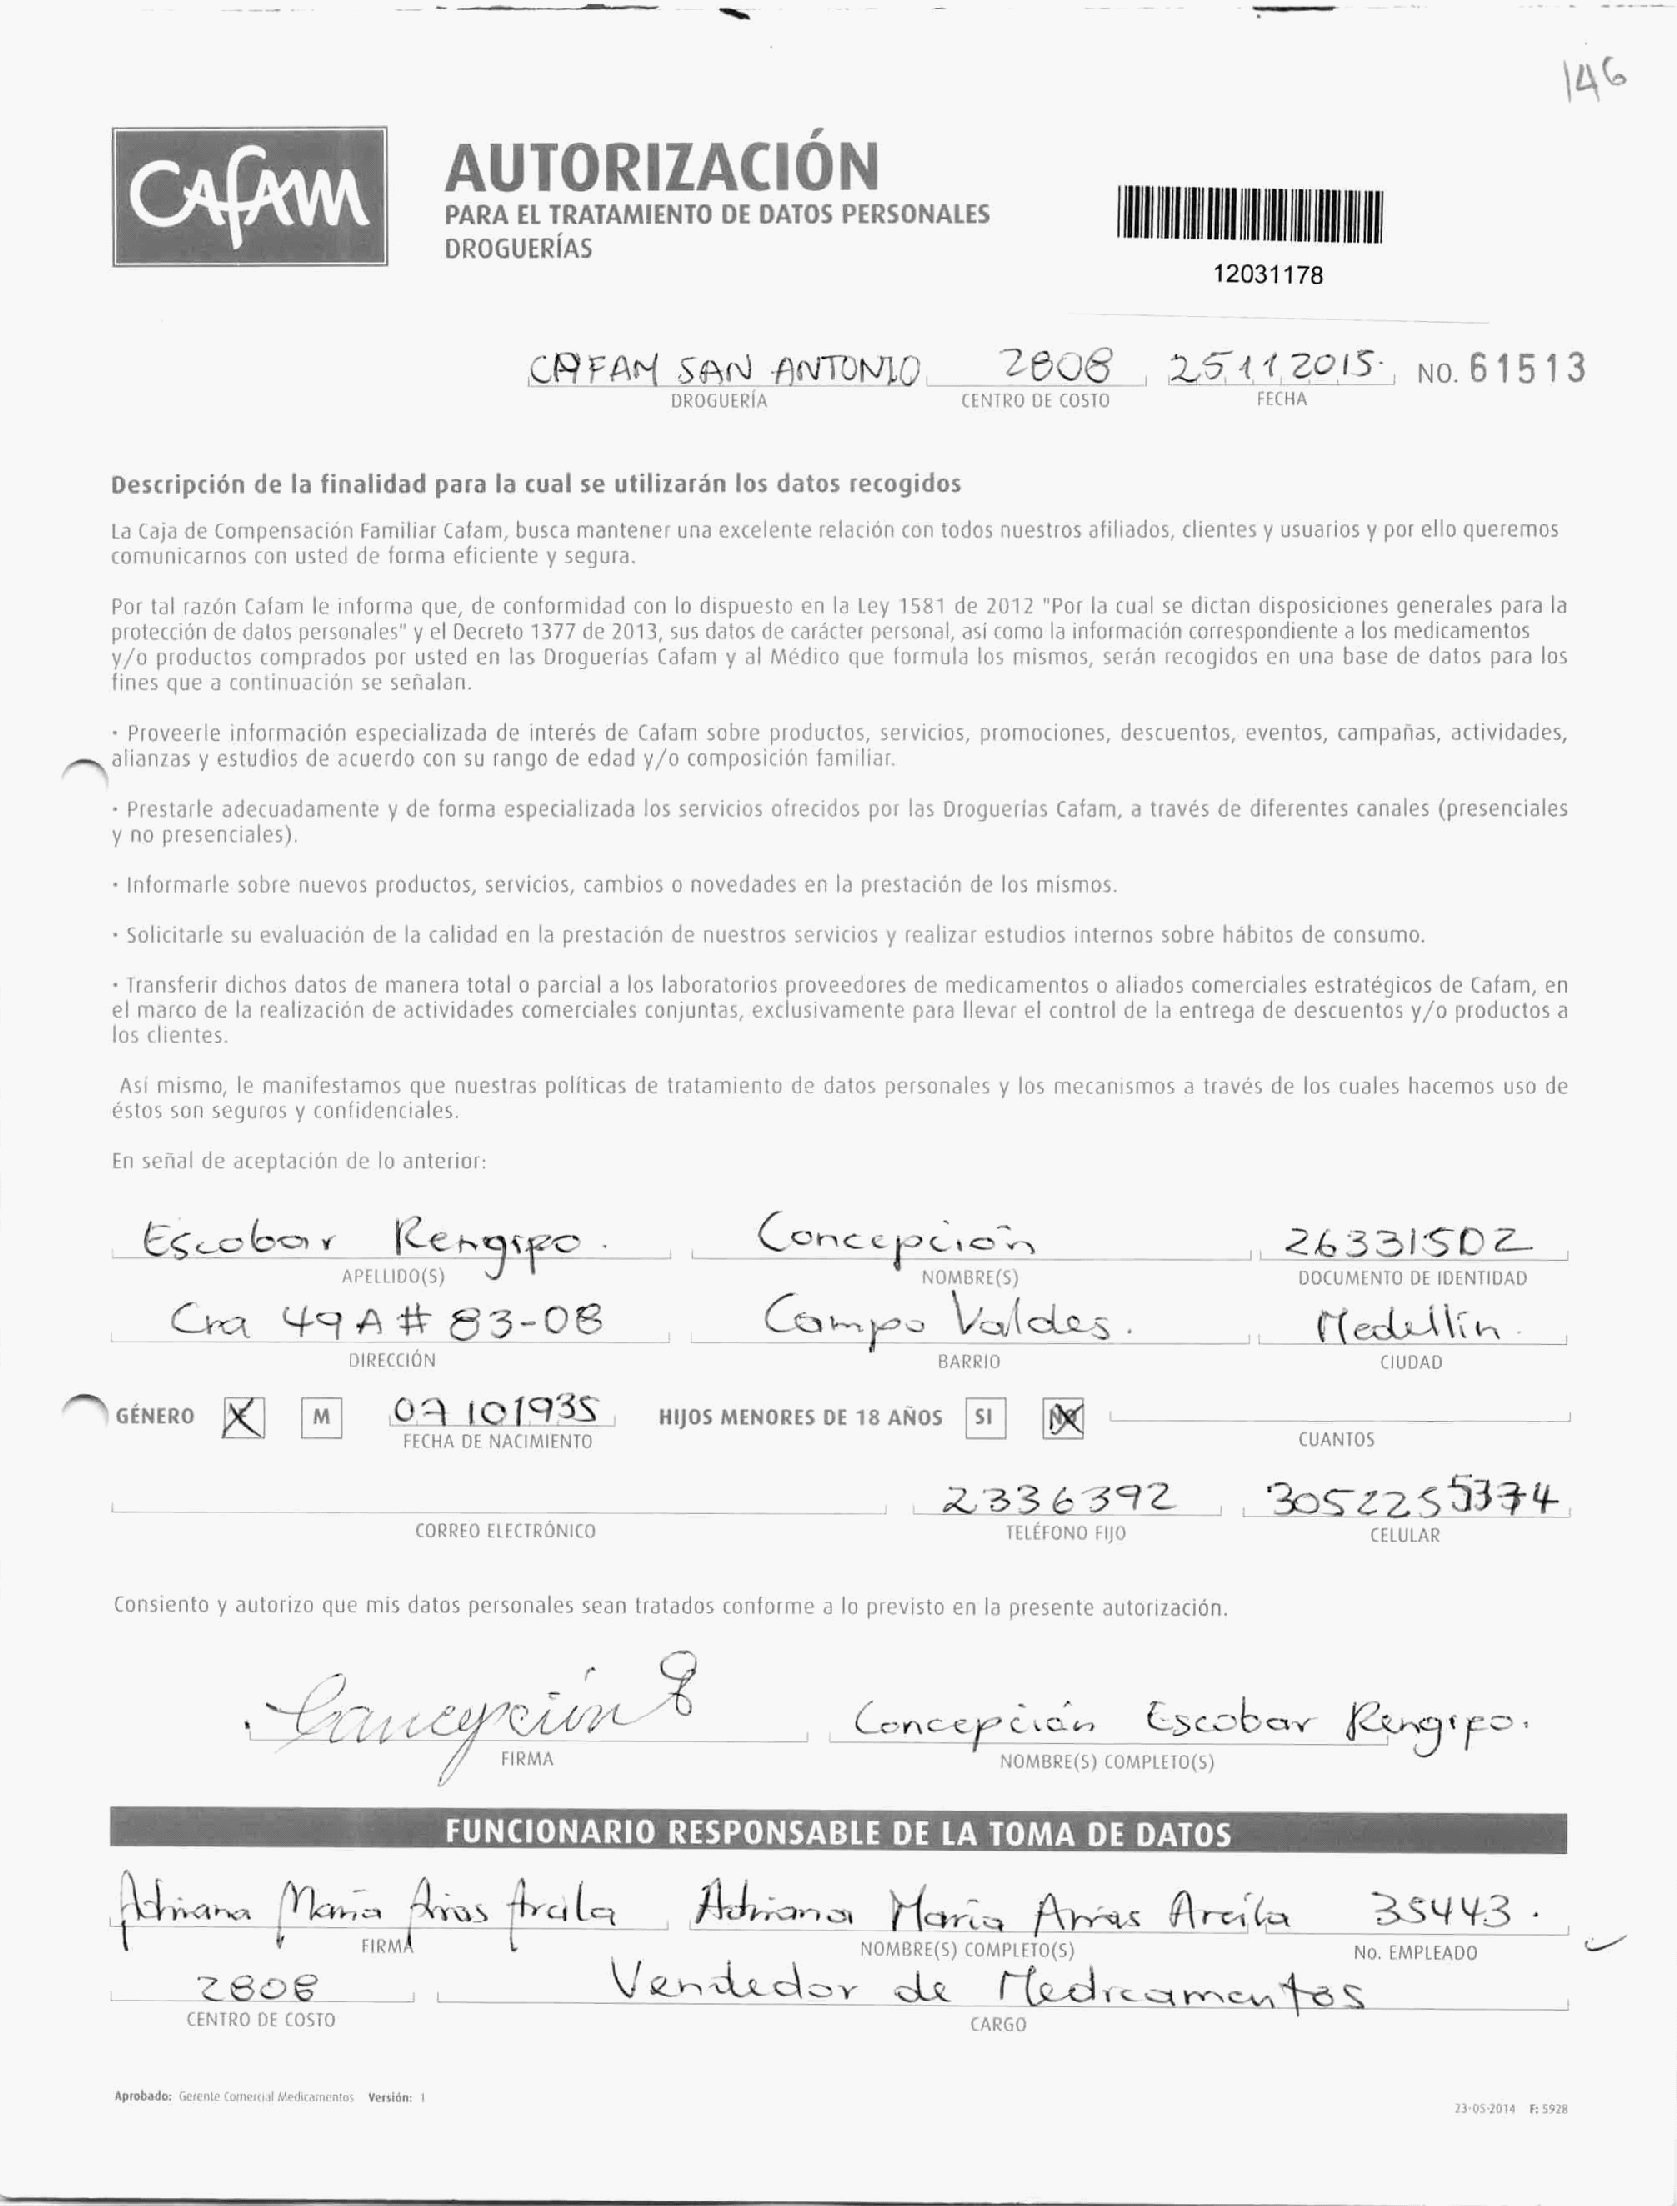 146
CAFAM
AUTORIZACIÓN
PARA EL TRATAMIENTO DE DATOS PERSONALES
DROGUERÍAS
12031178
CAFAM SAN ANTONIO 2808 25 11 2015. NO. 61513
DROGUERÍA CENTRO DE COSTO FECHA
Descripción de la finalidad para la cual se utilizarán los datos recogidos
La Caja de Compensación Familiar Cafam, busca mantener una excelente relación con todos nuestros afiliados, clientes y usuarios y por ello queremos
comunicarnos con usted de forma eficiente y segura.
Por tal razón Cafam le informa que, de conformidad con lo dispuesto en la Ley 1581 de 2012 "Por la cual se dictan disposiciones generales para la
protección de datos personales" y el Decreto 1377 de 2013, sus datos de carácter personal, así como la información correspondiente a los medicamentos
y/o productos comprados por usted en las Droguerías Cafam y al Médico que formula los mismos, serán recogidos en una base de datos para los
fines que a continuación se señalan.
· Proveerle información especializada de interés de Cafam sobre productos, servicios, promociones, descuentos, eventos, campañas, actividades,
alianzas y estudios de acuerdo con su rango de edad y/o composición familiar.
· Prestarle adecuadamente y de forma especializada los servicios ofrecidos por las Droguerías Cafam, a través de diferentes canales (presenciales
y no presenciales).
· Informarle sobre nuevos productos, servicios, cambios o novedades en la prestación de los mismos.
· Solicitarle su evaluación de la calidad en la prestación de nuestros servicios y realizar estudios internos sobre hábitos de consumo.
· Transferir dichos datos de manera total o parcial a los laboratorios proveedores de medicamentos o aliados comerciales estratégicos de Cafam, en
el marco de la realización de actividades comerciales conjuntas, exclusivamente para llevar el control de la entrega de descuentos y/o productos a
los clientes.
Así mismo, le manifestamos que nuestras políticas de tratamiento de datos personales y los mecanismos a través de los cuales hacemos uso de
éstos son seguros y confidenciales.
En señal de aceptación de lo anterior:
Escobar Rengifo. Concepción 26331502
APELLIDO(S) NOMBRE(S) DOCUMENTO DE IDENTIDAD
Cra 49A # 83-08 Campo Valdes. Medellín.
DIRECCIÓN BARRIO CIUDAD
GÉNERO X M 07 10 1935 HIJOS MENORES DE 18 AÑOS SI NO
FECHA DE NACIMIENTO CUANTOS
2336392 3052255374
CORREO ELECTRÓNICO TELÉFONO FIJO CELULAR
Consiento y autorizo que mis datos personales sean tratados conforme a lo previsto en la presente autorización.
Concepción E Concepción Escobar Rengifo.
FIRMA NOMBRE(S) COMPLETO(S)
FUNCIONARIO RESPONSABLE DE LA TOMA DE DATOS
Adriana Maria Arias Arcila Adriana Maria Arias Arcila 35443.
FIRMA NOMBRE(S) COMPLETO(S) No. EMPLEADO
2808 Vendedor de Medicamentos
CENTRO DE COSTO CARGO
Aprobado: Gerente Comercial Medicamentos Versión: 1
23-05-2014 F: 5928